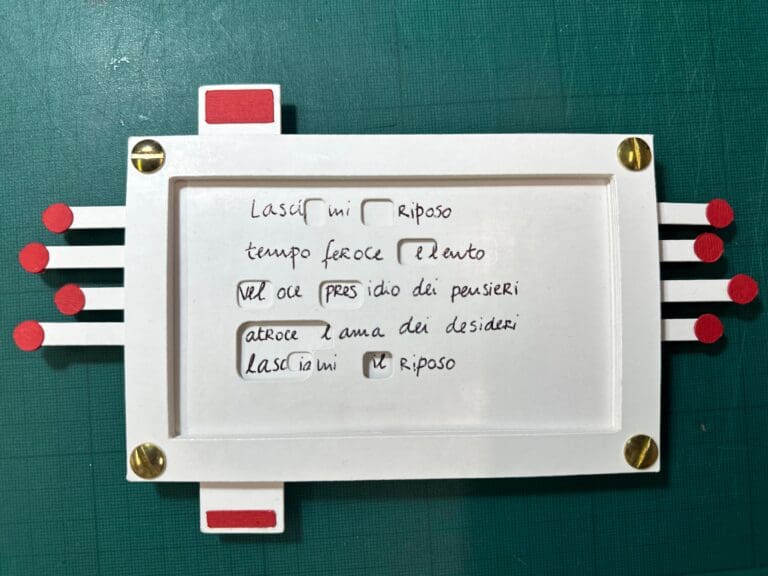 Lasci mi riposo
tempo feroce e lento
vel oce pres idio dei pensieri
atroce lama dei desideri
lasciami il riposo